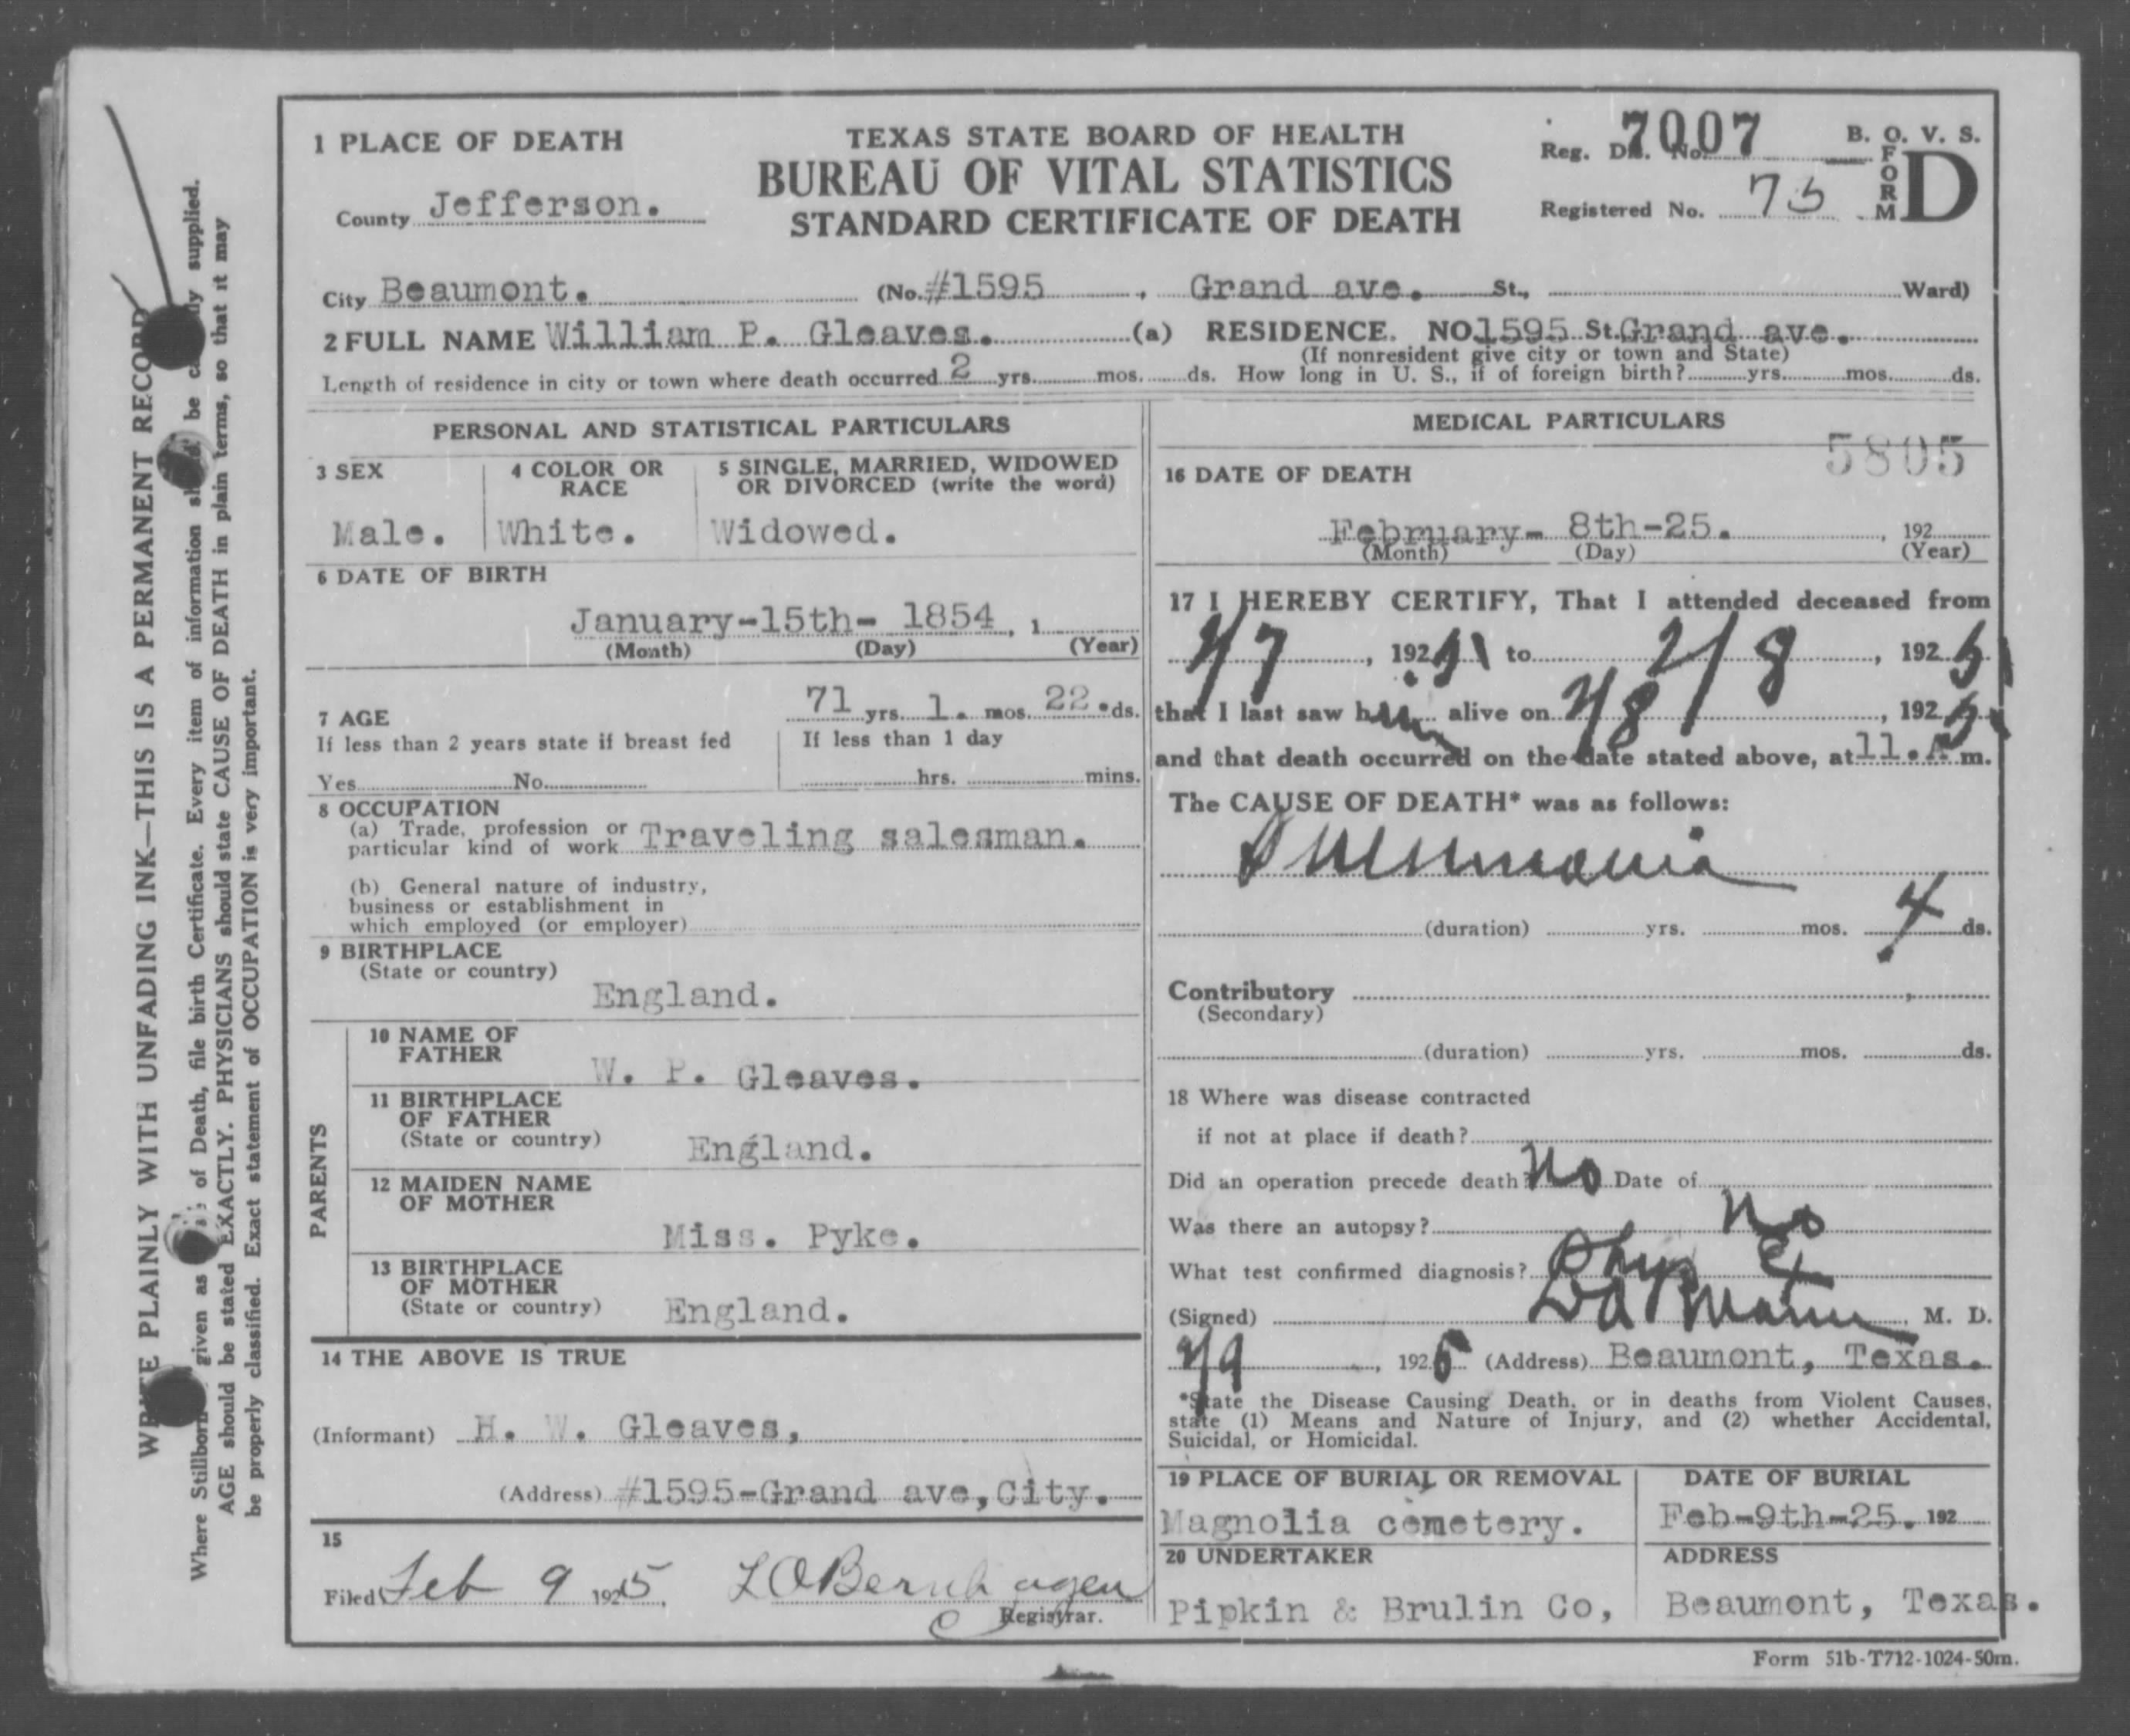 1 PLACE OF DEATH
TEXAS STATE BOARD OF HEALTH
BUREAU OF VITAL STATISTICS
STANDARD CERTIFICATE OF DEATH
Reg. Dis. No. 7007
B. O. V. S.
FORM D
County Jefferson.
Registered No. 75
City Beaumont. (No. #1595, Grand ave. St., Ward)
2 FULL NAME William P. Gleaves. (a) RESIDENCE. NO. 1595 St. Grand ave.
(If nonresident give city or town and State)
Length of residence in city or town where death occurred 2 yrs. mos. ds. How long in U. S., if of foreign birth? yrs. mos. ds.
PERSONAL AND STATISTICAL PARTICULARS
3 SEX
Male.
4 COLOR OR RACE
White.
5 SINGLE, MARRIED, WIDOWED
OR DIVORCED (write the word)
Widowed.
6 DATE OF BIRTH
January-15th- 1854, 1
(Month) (Day) (Year)
7 AGE
71 yrs. 1. mos. 22. ds.
If less than 2 years state if breast fed
Yes No
If less than 1 day
hrs. mins.
8 OCCUPATION
(a) Trade, profession or
particular kind of work Traveling salesman.
(b) General nature of industry,
business or establishment in
which employed (or employer)
9 BIRTHPLACE
(State or country)
England.
PARENTS
10 NAME OF
FATHER
W. P. Gleaves.
11 BIRTHPLACE
OF FATHER
(State or country)
England.
12 MAIDEN NAME
OF MOTHER
Miss. Pyke.
13 BIRTHPLACE
OF MOTHER
(State or country)
England.
14 THE ABOVE IS TRUE
(Informant) H. W. Gleaves,
(Address) #1595-Grand ave,City.
15
Filed Feb 9 1925, L O Bernhagen
Registrar.
MEDICAL PARTICULARS
5805
16 DATE OF DEATH
February- 8th-25. , 192
(Month) (Day) (Year)
17 I HEREBY CERTIFY, That I attended deceased from
2/7, 192 to 2/8, 1925
that I last saw him alive on 2/8, 1925
and that death occurred on the date stated above, at 11.A m.
The CAUSE OF DEATH* was as follows:
Pneumonia
(duration) yrs. mos. 4 ds.
Contributory
(Secondary)
(duration) yrs. mos. ds.
18 Where was disease contracted
if not at place if death?
Did an operation precede death? No Date of
Was there an autopsy? No
What test confirmed diagnosis? Phys Ex
(Signed) Mann, M. D.
2/9, 1925 (Address) Beaumont, Texas.
*State the Disease Causing Death, or in deaths from Violent Causes,
state (1) Means and Nature of Injury, and (2) whether Accidental,
Suicidal, or Homicidal.
19 PLACE OF BURIAL OR REMOVAL
Magnolia cemetery.
DATE OF BURIAL
Feb-9th-25. 192
20 UNDERTAKER
Pipkin & Brulin Co,
ADDRESS
Beaumont, Texas.
Form 51b-T712-1024-50m.
WRITE PLAINLY WITH UNFADING INK—THIS IS A PERMANENT RECORD
Where Stillborn given as of Death, file birth Certificate. Every item of information be supplied.
AGE should be stated EXACTLY. PHYSICIANS should state CAUSE OF DEATH in plain terms, so that it may
be properly classified. Exact statement of OCCUPATION is very important.